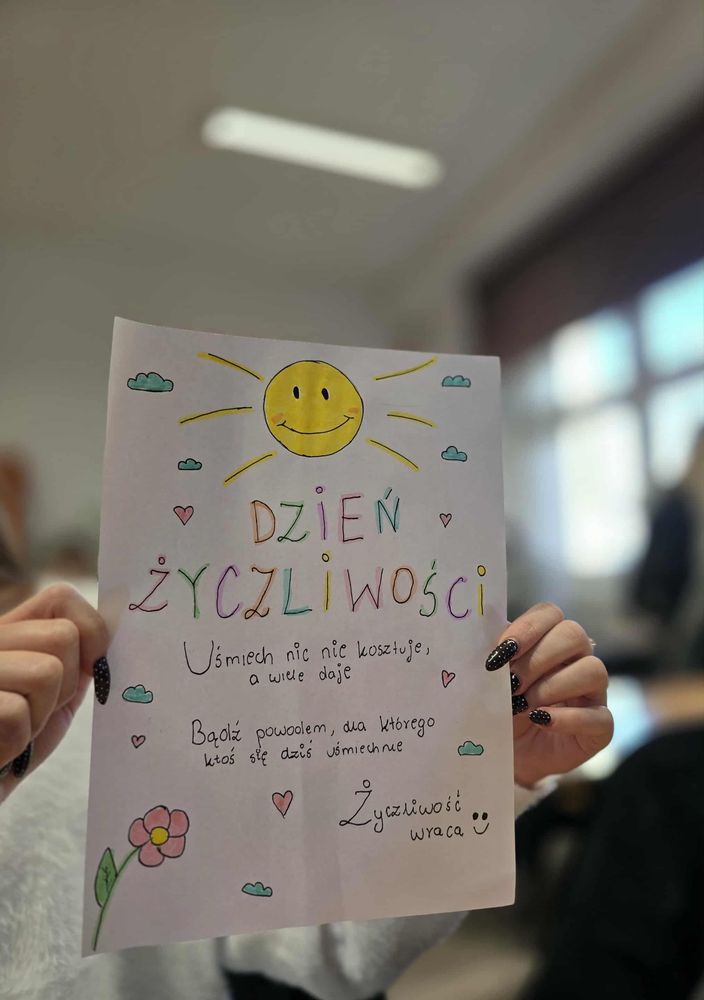 DZiEŃ
ŻYCZLiWOŚCi
Uśmiech nic nie kosztuje,
a wiele daje
Bądź powodem, dla którego
ktoś się dziś uśmiechnie
Życzliwość
wraca